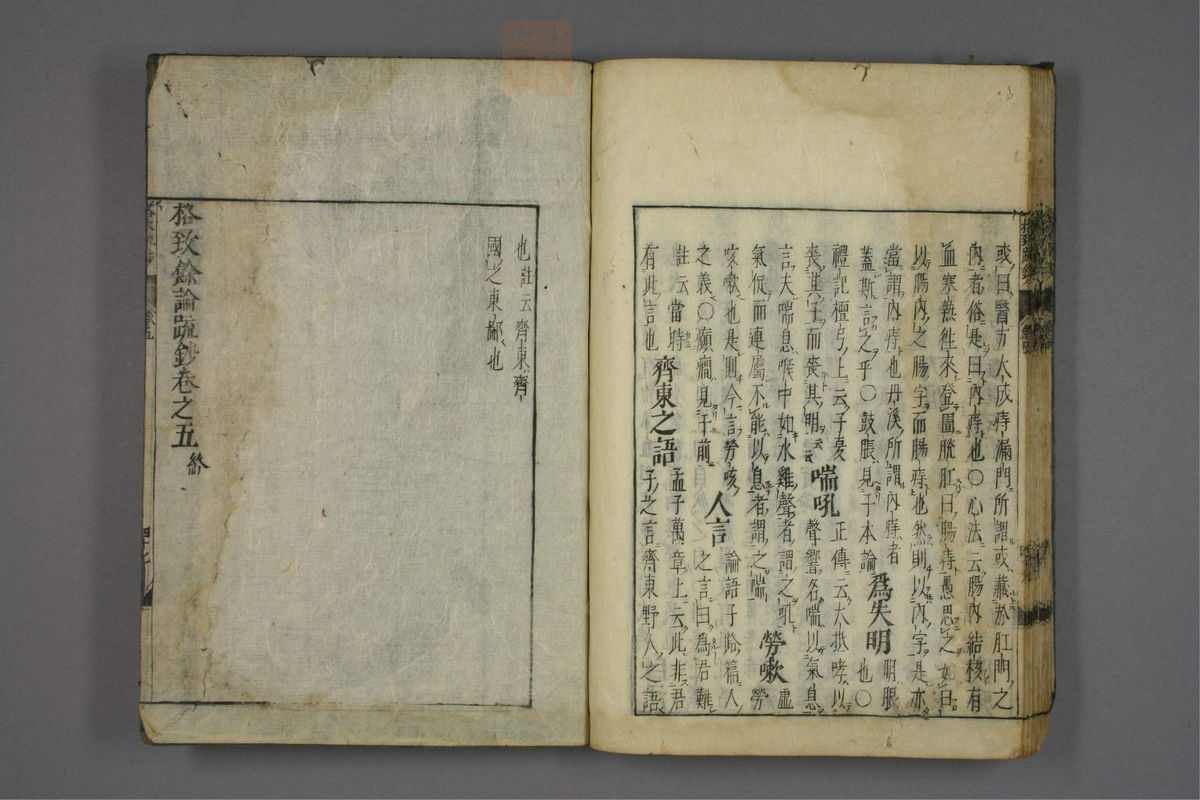 或曰醫方大成痔漏門所謂或藏於肛門之
内者俗是曰内痔也〇心法云腸内結核有
血寒熱往來登圊脫肛曰腸痔愚思之如曰
以腸内之腸字而腸痔也然則以内字是亦
當謂内痔也丹溪所謂内痔者
蓋斯言之乎〇鼓脹見于本論 爲失明 明脹也〇
禮記檀弓上云子夏
喪其子而喪其明云云 喘吼 正傳云大抵哮以聲響名喘以氣息
言夫喘息喉中如水雞聲者謂之吼
氣促而連屬不能以息者謂之喘 勞嗽 虛勞
咳嗽也是則今言勞咳
之義〇癲癇見于前 人言 論語子路篇人之言曰爲君難
註云當時
有此言也 齊東之語 孟子萬章上云此非君子之言齊東野人之語
也註云齊東齊
國之東鄙也
格致餘論疏鈔卷之五 終